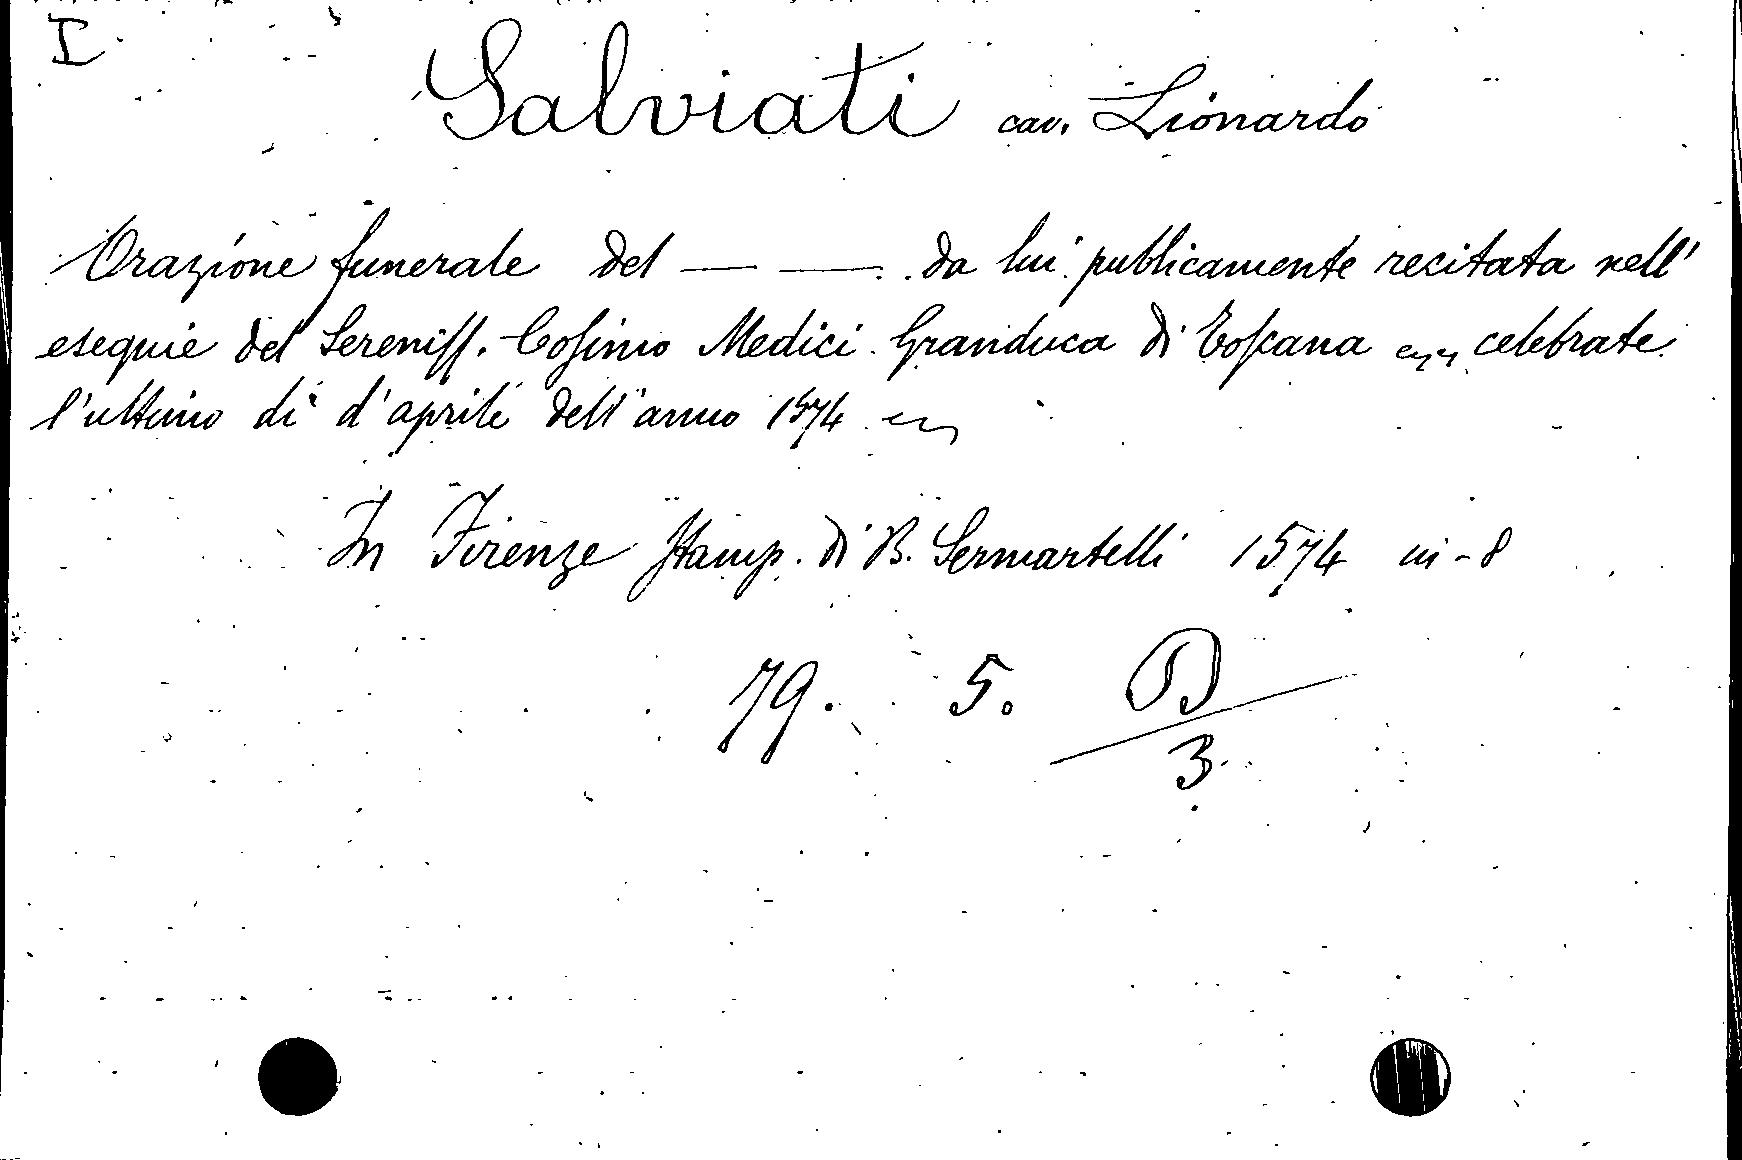 I
Salviati cav. Lionardo
Orazione funerale del — — . da lui publicamente recitata nell'
esequie del Sereniſſ. Coſimo Medici Granduca di Toſcana celebrate
l'ultimo dì d'aprile dell'anno 1574
In Firenze ſtamp. di B. Sermartelli 1574 in-8
79. 5. D/3